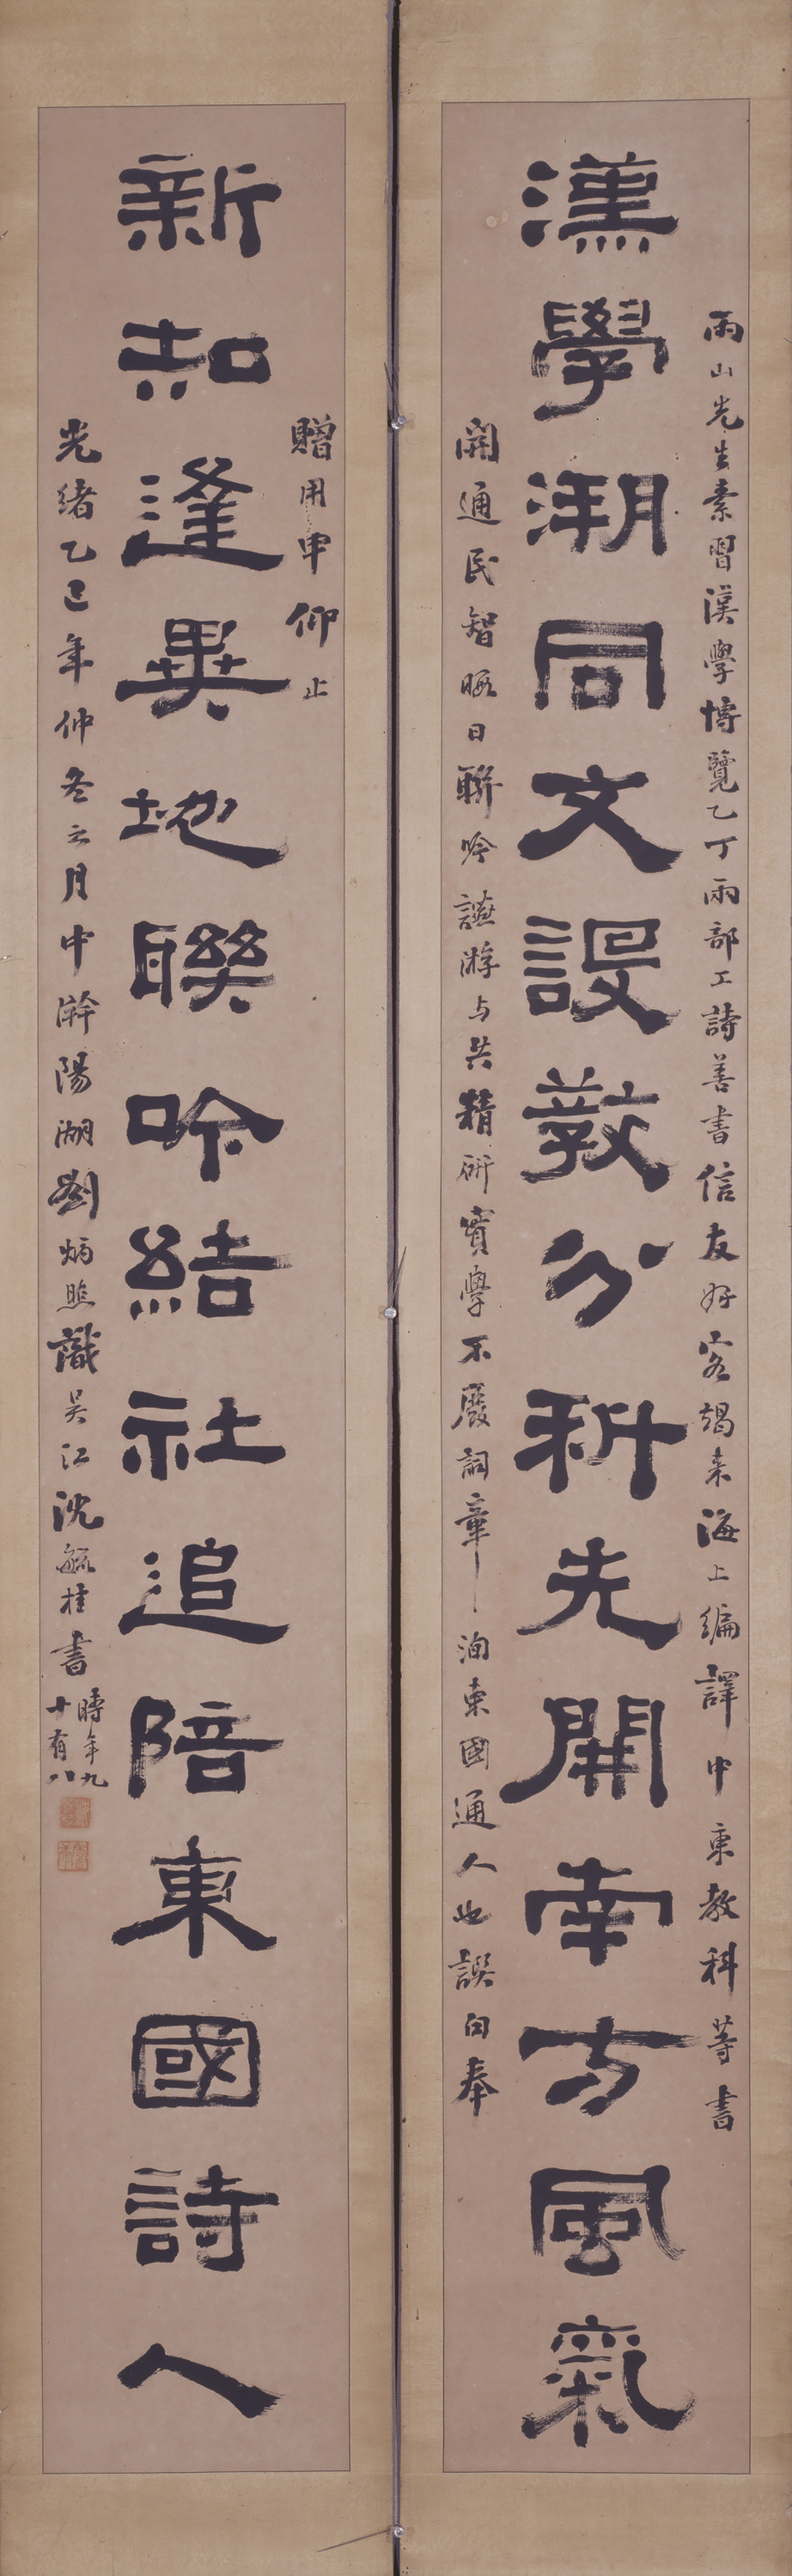 雨山先生素習漢學博覽乙丁兩部工詩善書信友好客朅来海上編譯中東教科等書
漢學溯同文設敎分科先開南方風氣
開通民智暇日聯吟讌游与共精研實學不廢詞章洵東國通人也譔句奉
贈用申仰止
新知逢異地聯吟結社追陪東國詩人
光緒乙巳年仲冬之月中澣陽湖劉炳照識吳江沈毓桂書
時年九
十有八